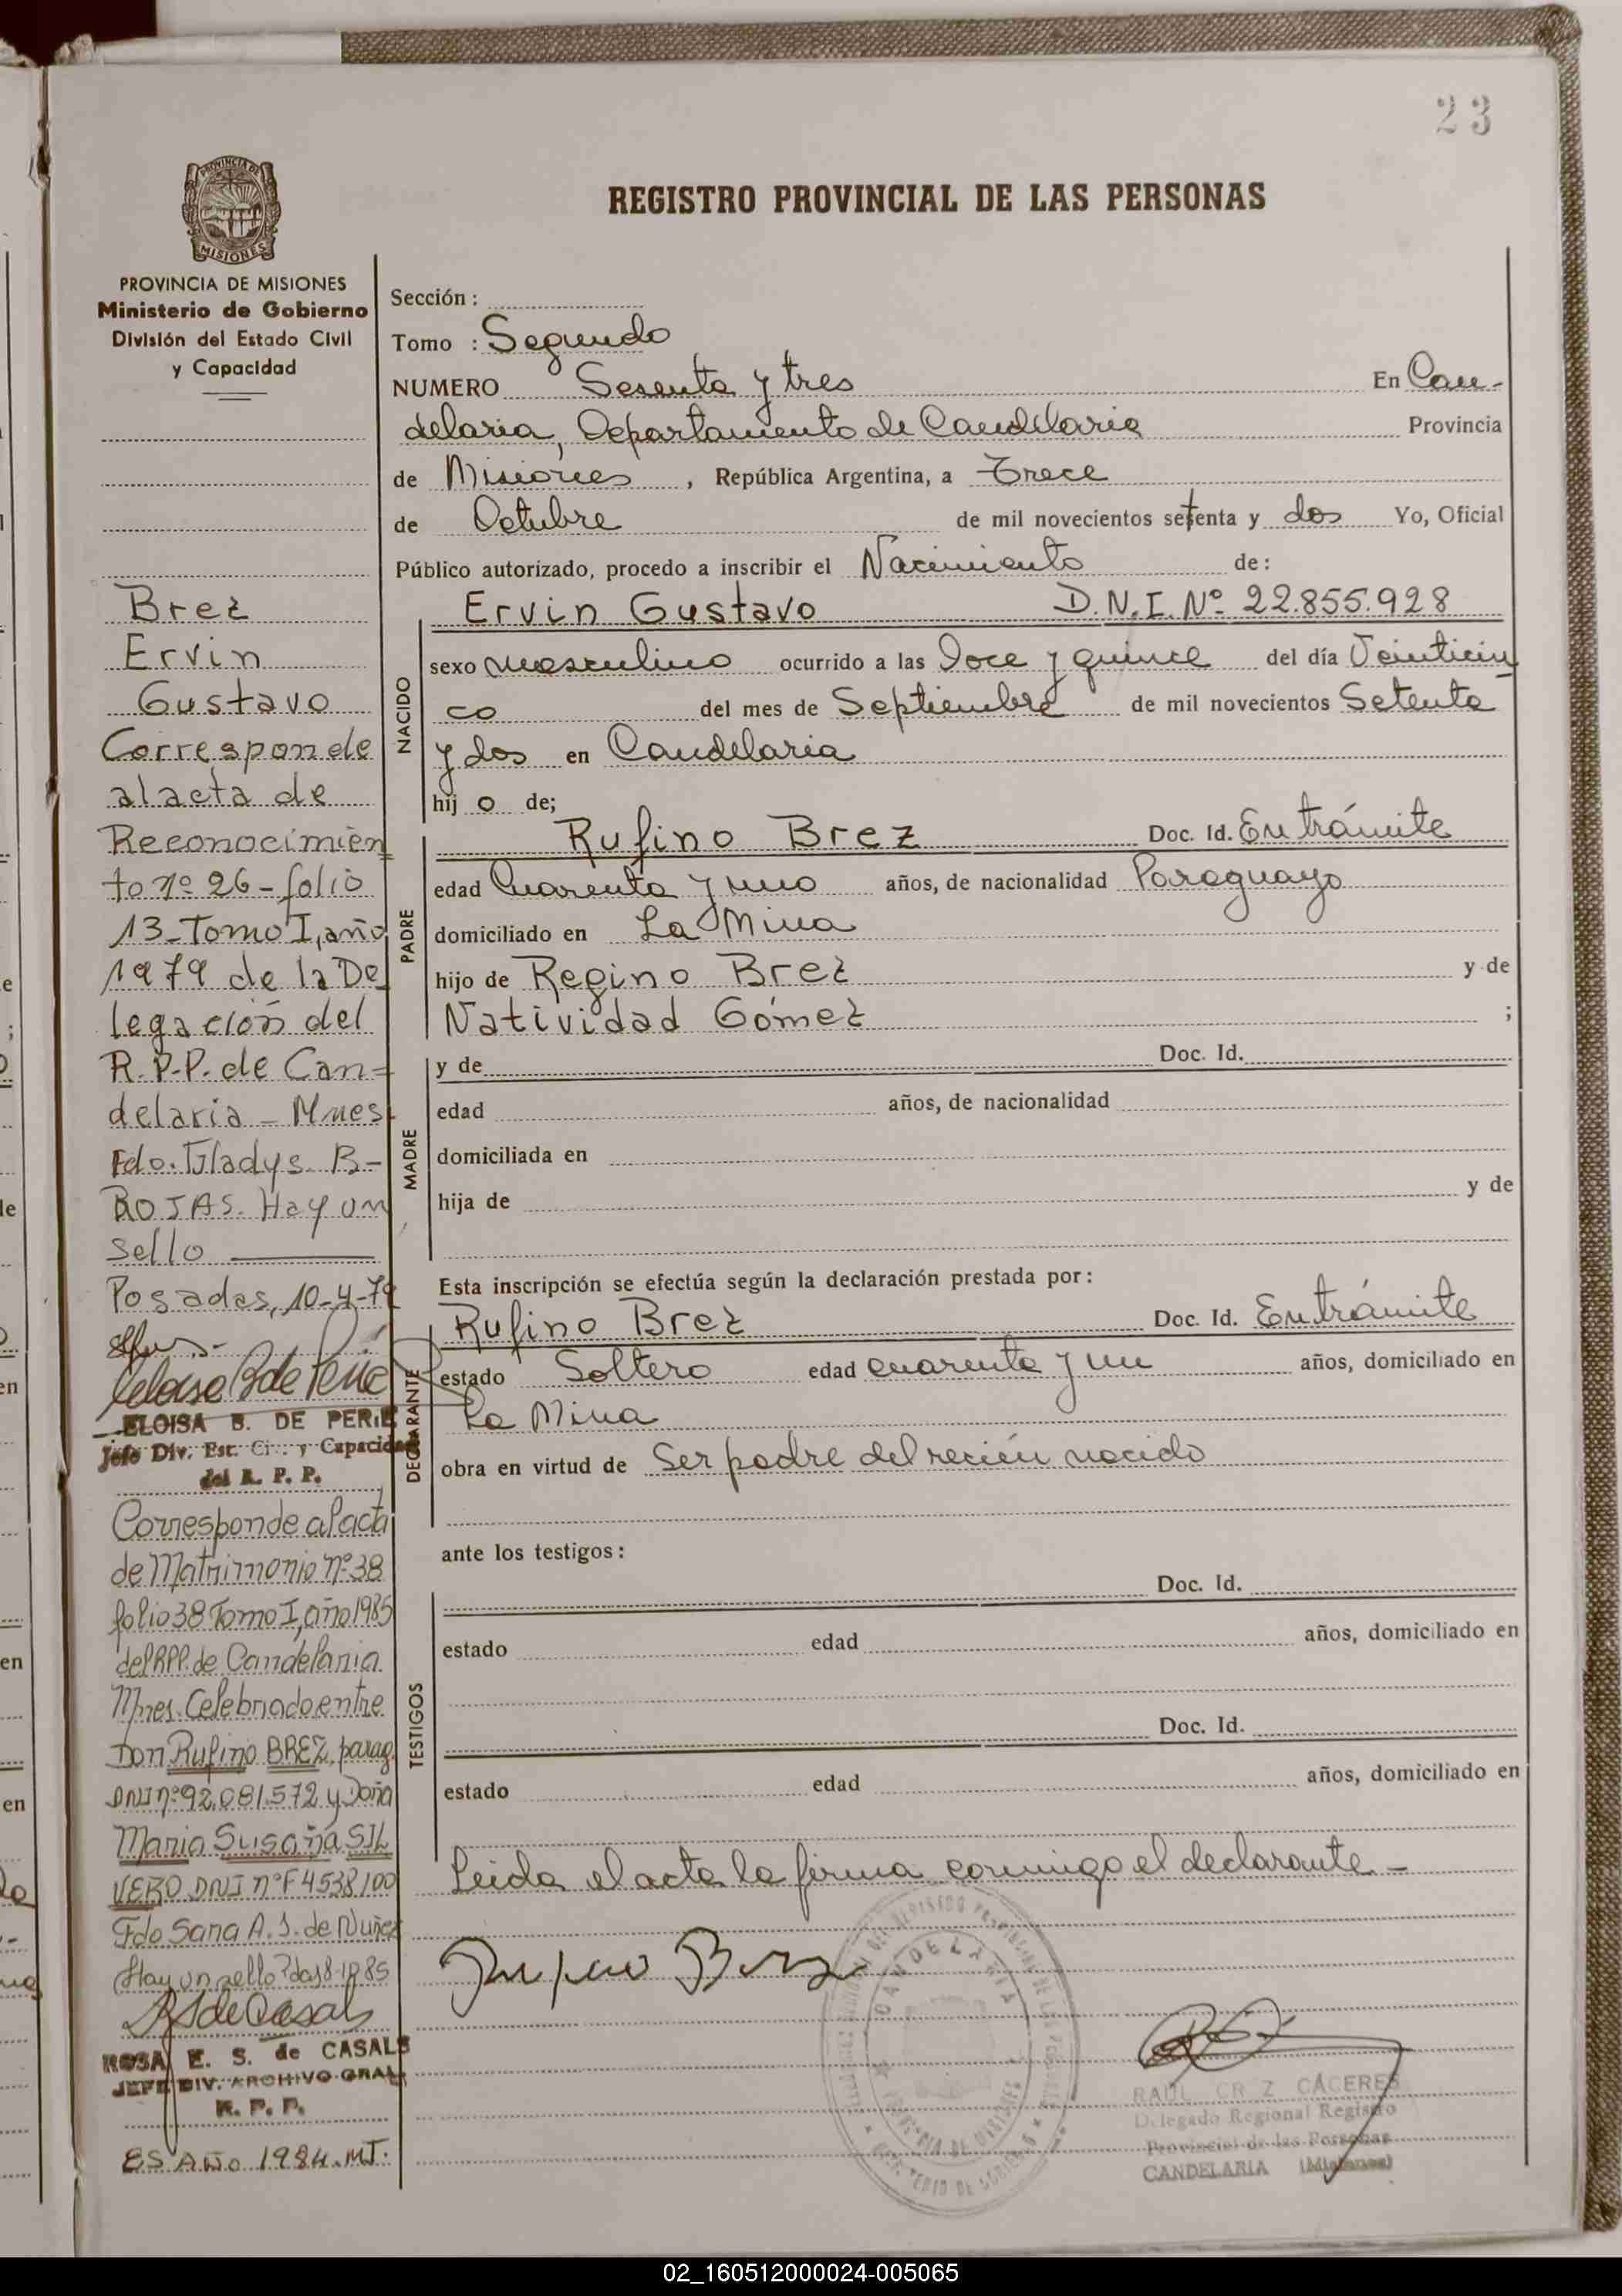 23
PROVINCIA DE
MISIONES
REGISTRO PROVINCIAL DE LAS PERSONAS
PROVINCIA DE MISIONES
Ministerio de Gobierno
División del Estado Civil
y Capacidad
Brez
Ervin
Gustavo
Corresponde
al acta de
Reconocimien
to nº 26 - folio
13 - Tomo I, año
1979 de la De
legación del
R.P.P. de Can-
delaria - Mnes
Fdo. Gladys B-
ROJAS. Hay un
sello
Posadas, 10-4-79
ELOISA B. DE PERIE
Jefe Div. Est. Ci . y Capacidad
del R. P. P.
Corresponde al acta
de Matrimonio nº 38
folio 38 Tomo I, año 1985
del RPP. de Candelaria
Mnes. Celebrado entre
Don Rufino BREZ, parag.
DNI nº 92.081.572 y Doña
Maria Susana SIL
VERO DNI nº F 4538100
Fdo Sara A. J. de Nuñez
Hay un sello
ROSA E. S. de CASALS
JEFE DIV. ARCHIVO GRAL
R. P. P.
ES AÑO 1984. MJ.
Sección :
Tomo : Segundo
NUMERO Sesenta y tres En Can-
delaria, Departamento de Candelaria Provincia
de Misiones , República Argentina, a Trece
de Octubre de mil novecientos setenta y dos Yo, Oficial
Público autorizado, procedo a inscribir el Nacimiento de:
Ervin Gustavo D.N.I. Nº 22.855.928
NACIDO
sexo masculino ocurrido a las Doce y quince del día Veinticin
co del mes de Septiembre de mil novecientos Setenta
y dos en Candelaria
hij o de;
PADRE
Rufino Brez Doc. Id. En trámite
edad Cuarenta y uno años, de nacionalidad Paraguayo
domiciliado en La Mina
hijo de Regino Brez y de
Natividad Gómez ;
MADRE
y de Doc. Id.
edad años, de nacionalidad
domiciliada en
hija de y de
Esta inscripción se efectúa según la declaración prestada por:
DECLARANTE
Rufino Brez Doc. Id. En trámite
estado Soltero edad cuarenta y un años, domiciliado en
La Mina
obra en virtud de Ser padre del recién nacido
ante los testigos:
TESTIGOS
Doc. Id.
estado edad años, domiciliado en
Doc. Id.
estado edad años, domiciliado en
Leida el acta la firma conmigo el declarante -
CANDELARIA
PROVINCIA DE MISIONES
RAUL CRUZ CACERES
Delegado Regional Registro
Provincial de las Personas
CANDELARIA (Misiones)
02_160512000024-005065